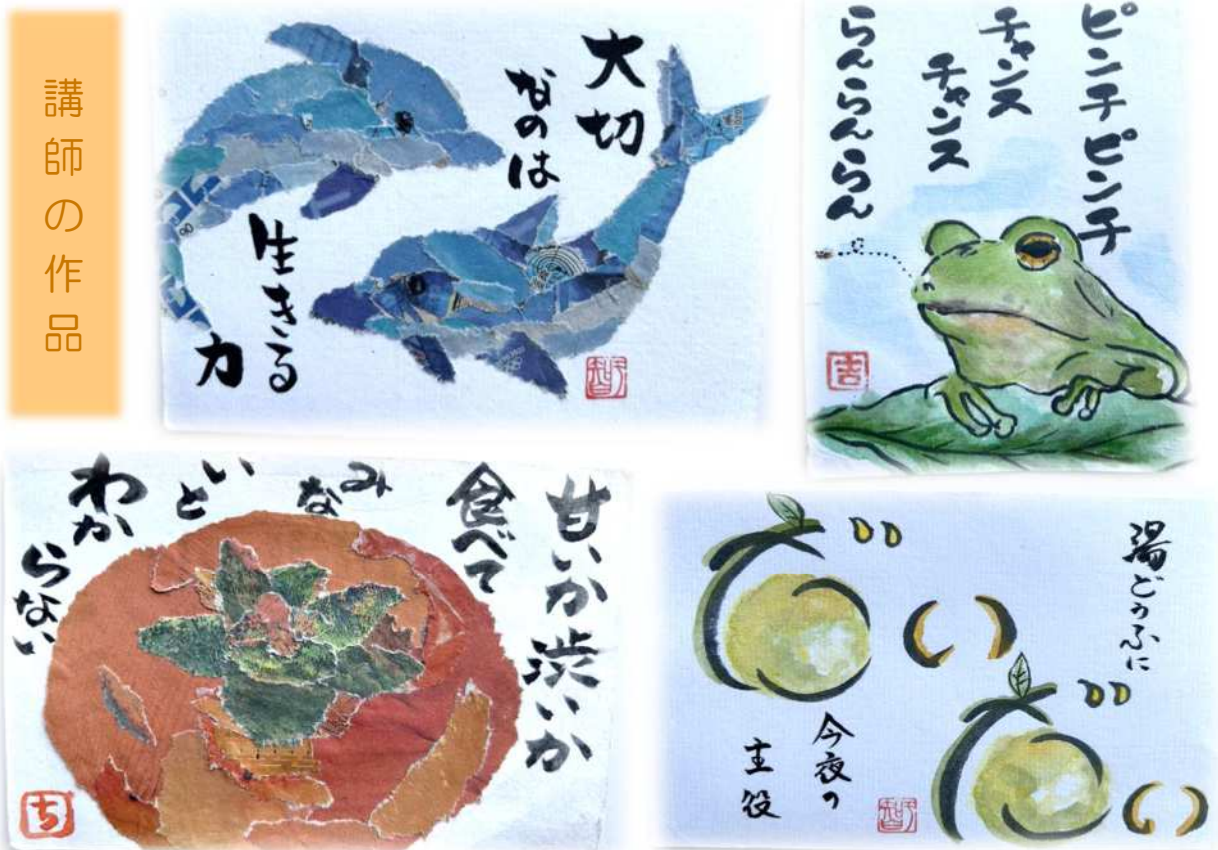 講師の作品
大切
なのは
生きる
力
ピンチピンチ
チャンス
チャンス
らんらんらん
吉
甘いか渋いか
食べて
みな
いと
わか
らない
ち
湯どうふに
だい
だい
今夜の
主役